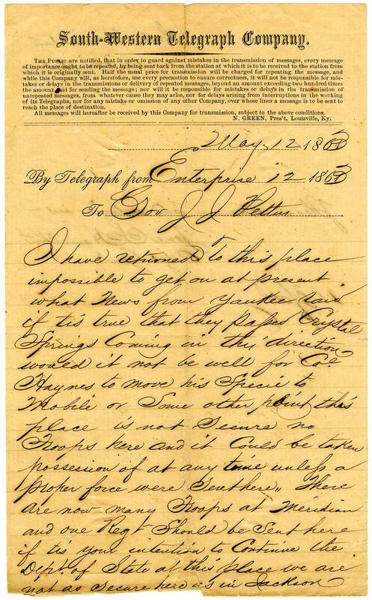 South-Western Telegraph Company.
THE PUBLIC are notified, that in order to guard against mistakes in the transmission of messages, every message
of importance ought to be repeated, by being sent back from the station at which it is to be received to the station from
which it is originally sent. Half the usual price for transmission will be charged for repeating the message, and
while this Company will, as heretofore, use every precaution to ensure correctness, it will not be responsible for mis-
takes or delays in the transmissions or delivery of repeated messages, beyond an amount exceeding two hundred times
the amount paid for sending the message; nor will it be responsible for mistakes or delays in the transmission of
unrepeated messages, from whatever cause they may arise, nor for delays arising from interruptions in the working
of its Telegraphs, nor for any mistake or omission of any other Company, over whose lines a message is to be sent to
reach the place of destination.
All messages will hereafter be received by this Company for transmission, subject to the above conditions.
N. GREEN, Pres't, Louisville, Ky.
May 12 1863
By Telegraph from Enterprise 12 1863
To Gov J J Pettus
I have returned to this place
impossible to get on at present
what News from Yankee raid
if tis true that they passed Crystal
Springs Coming in this direction
would it not be well for Col
Haynes to move his Specie to
Mobile or Some other point this
place is not Secure no
Troops here and it Could be taken
possession of at any time unless a
proper force were Sent here. There
are now many Troops at Meridian
and one Regt Should be Sent here
if tis your intention to Continue the
Dept. of State at this place we are
not as Secure here as in Jackson